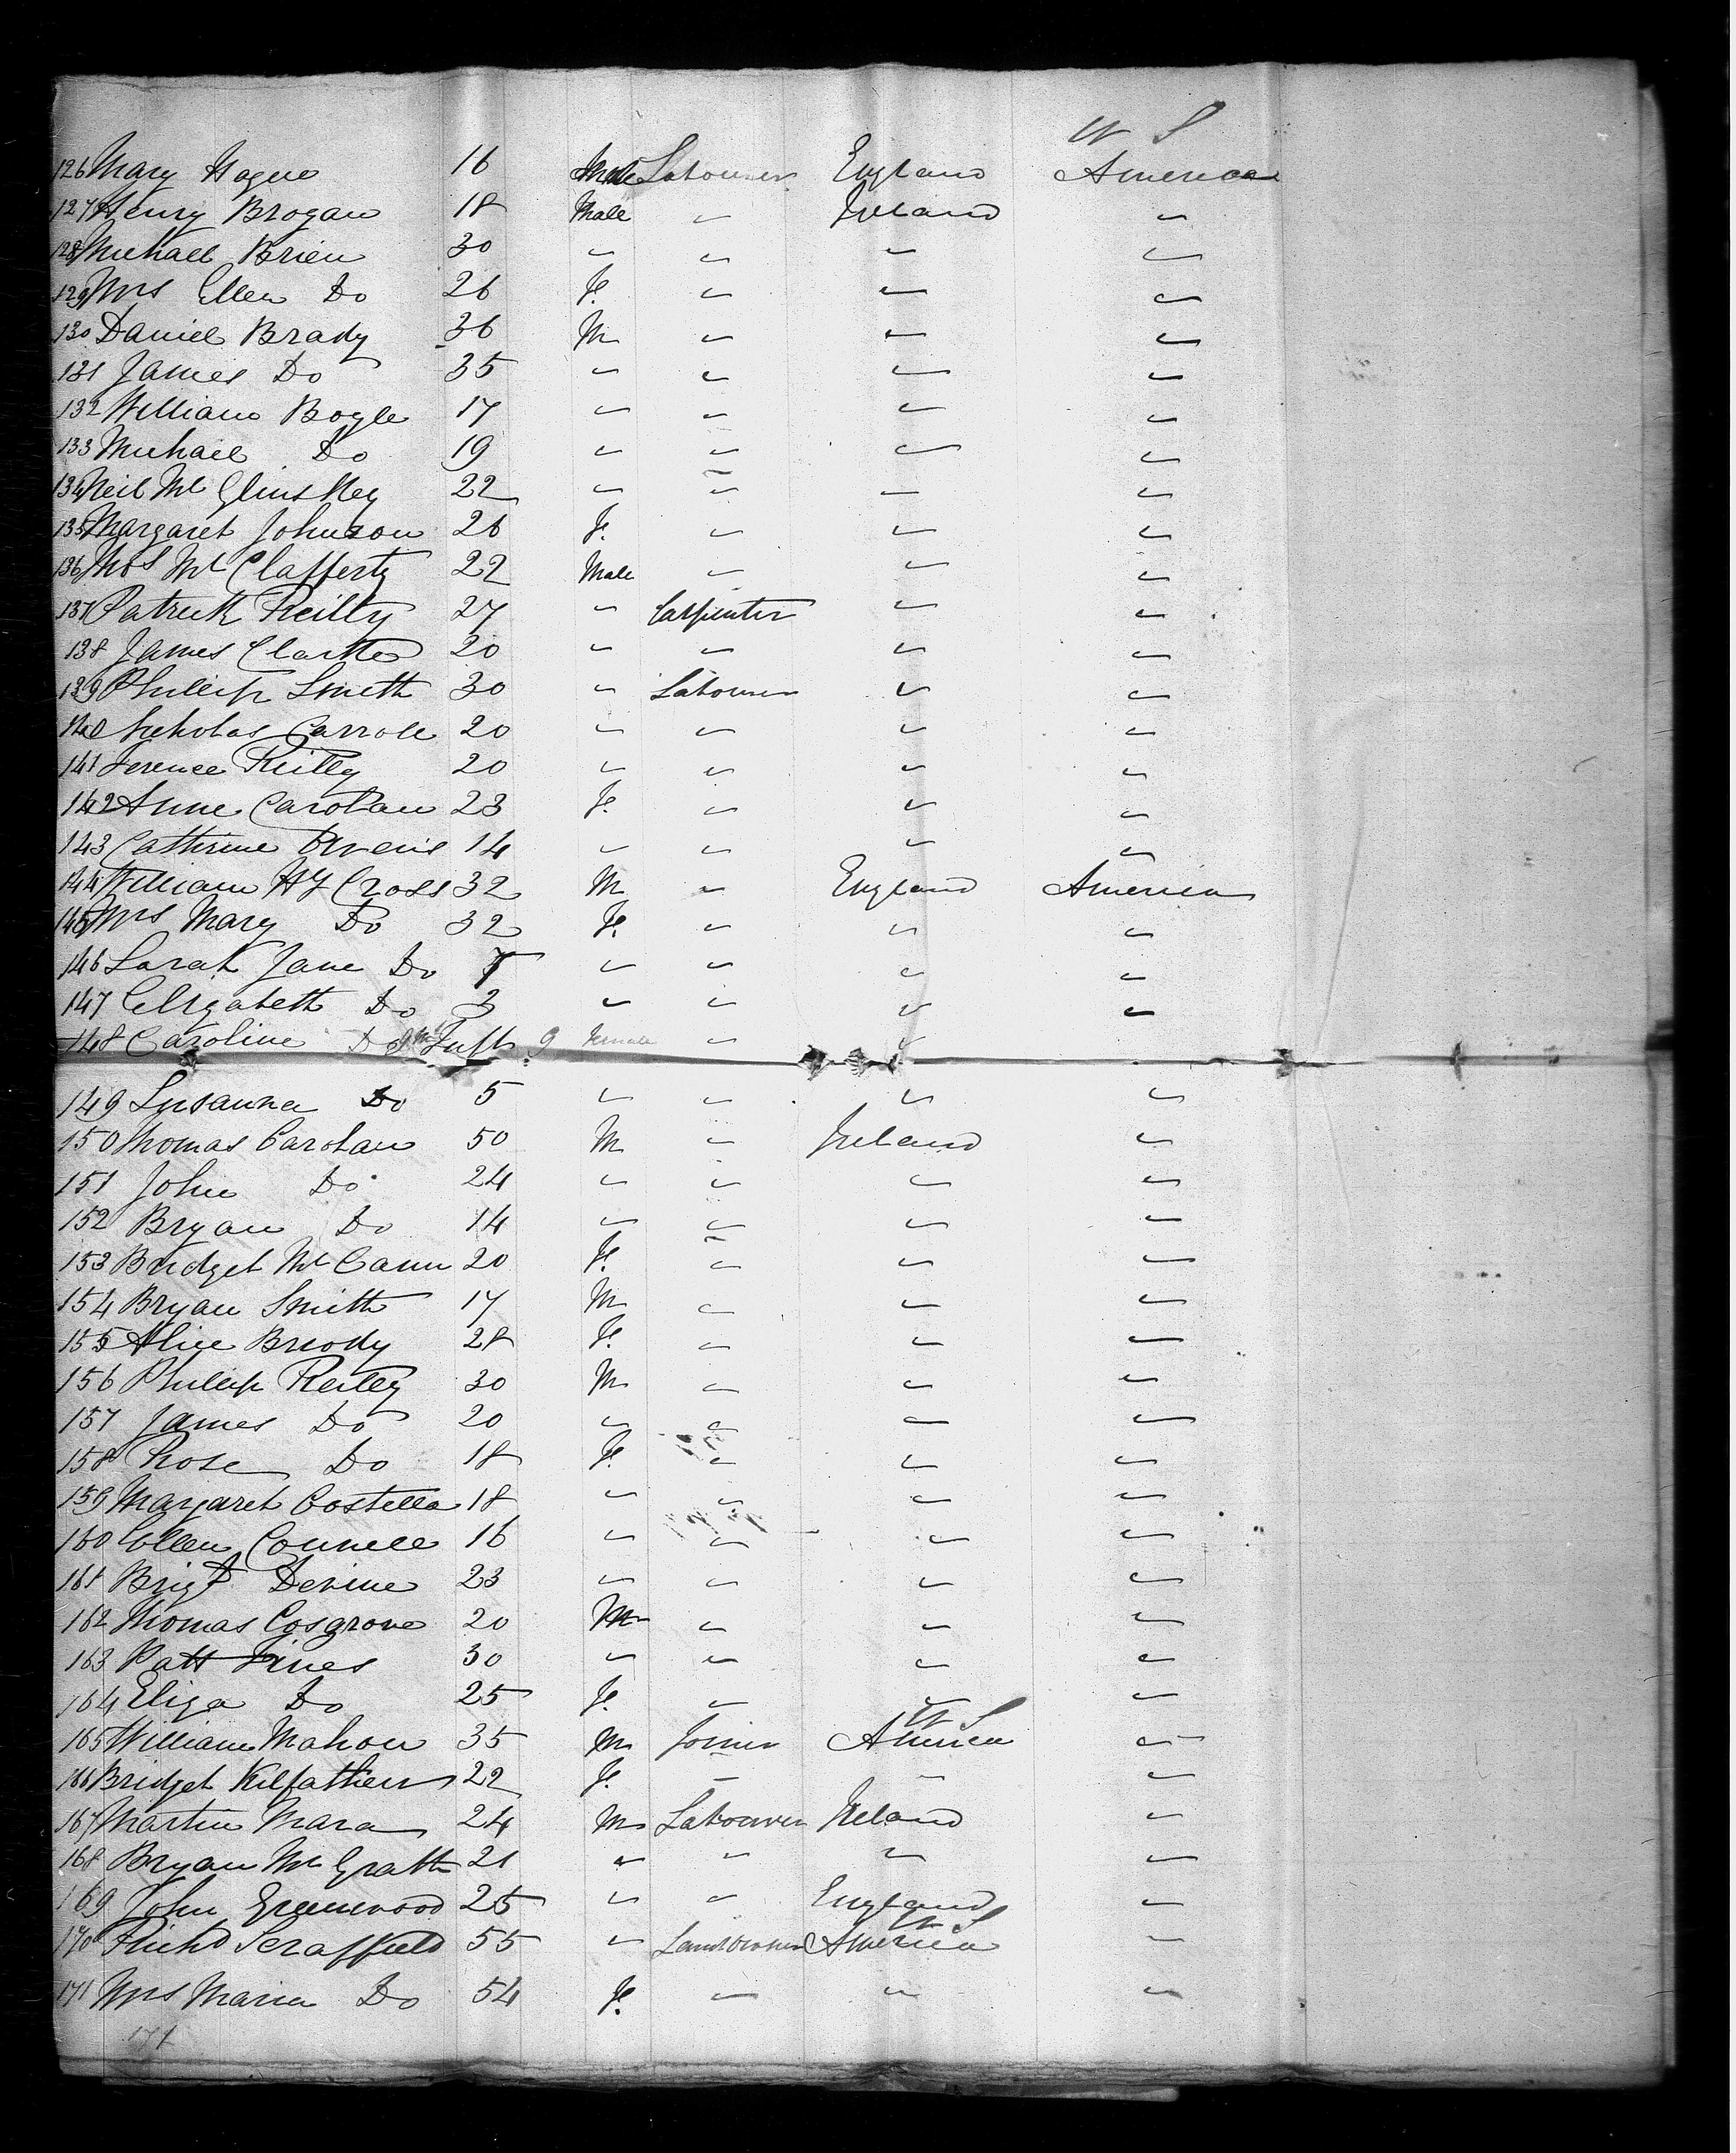 U S
126 Mary Hague 16 Male Labourer England America
127 Henry Brogan 18 Male " Ireland "
128 Michael Brien 30 " " " "
129 Mrs Ellen Do 26 F. " " "
130 Daniel Brady 36 M " " "
131 James Do 35 " " " "
132 William Bogle 17 " " " "
133 Michael Do 19 " " " "
134 Neil Mc 22 " " " "
135 Margaret Johnson 26 F. " " "
136 Thos Mc Clafferty 22 Male " " "
137 Patrick Reilly 27 " Carpenter " "
138 James Clarke 20 " " " "
139 Phillip Smith 30 " Labourer " "
140 Nicholas Carroll 20 " " " "
141 Terence Reilly 20 " " " "
142 Anne Carolan 23 F. " " "
143 Catherine 14 " " " "
144 William Cross 32 M " England America
145 Mrs Mary Do 32 F. " " "
146 Sarah Jane Do 7 " " " "
147 Elizabeth Do 3 " " " "
148 Caroline Do 9 Female " "
149 Susanna Do 5 " " " "
150 Thomas Carolan 50 M " Ireland "
151 John Do 24 " " " "
152 Bryan Do 14 " " " "
153 Bridget Mc Cann 20 F. " " "
154 Bryan Smith 17 M " " "
155 Alice Briody 28 F. " " "
156 Phillip Reilly 30 M " " "
157 James Do 20 " " " "
158 Rose Do 18 F. " " "
159 Margaret Costello 18 " " " "
160 Ellen Connell 16 " " " "
161 Brigt Devine 23 " " " "
162 Thomas Cosgrove 20 M " " "
163 Patt Fines 30 " " " "
164 Eliza Do 25 F. " " "
U S
165 William Mahon 35 M Joiner America "
166 Bridget 22 F. " " "
167 Martin Mara 24 M Labourer Ireland "
168 Bryan Mc Grath 21 " " " "
169 John Greenwood 25 " " England "
U S
170 Richd Scraffield 55 " Landowner America "
171 Mrs Maria Do 54 F. " " "
171